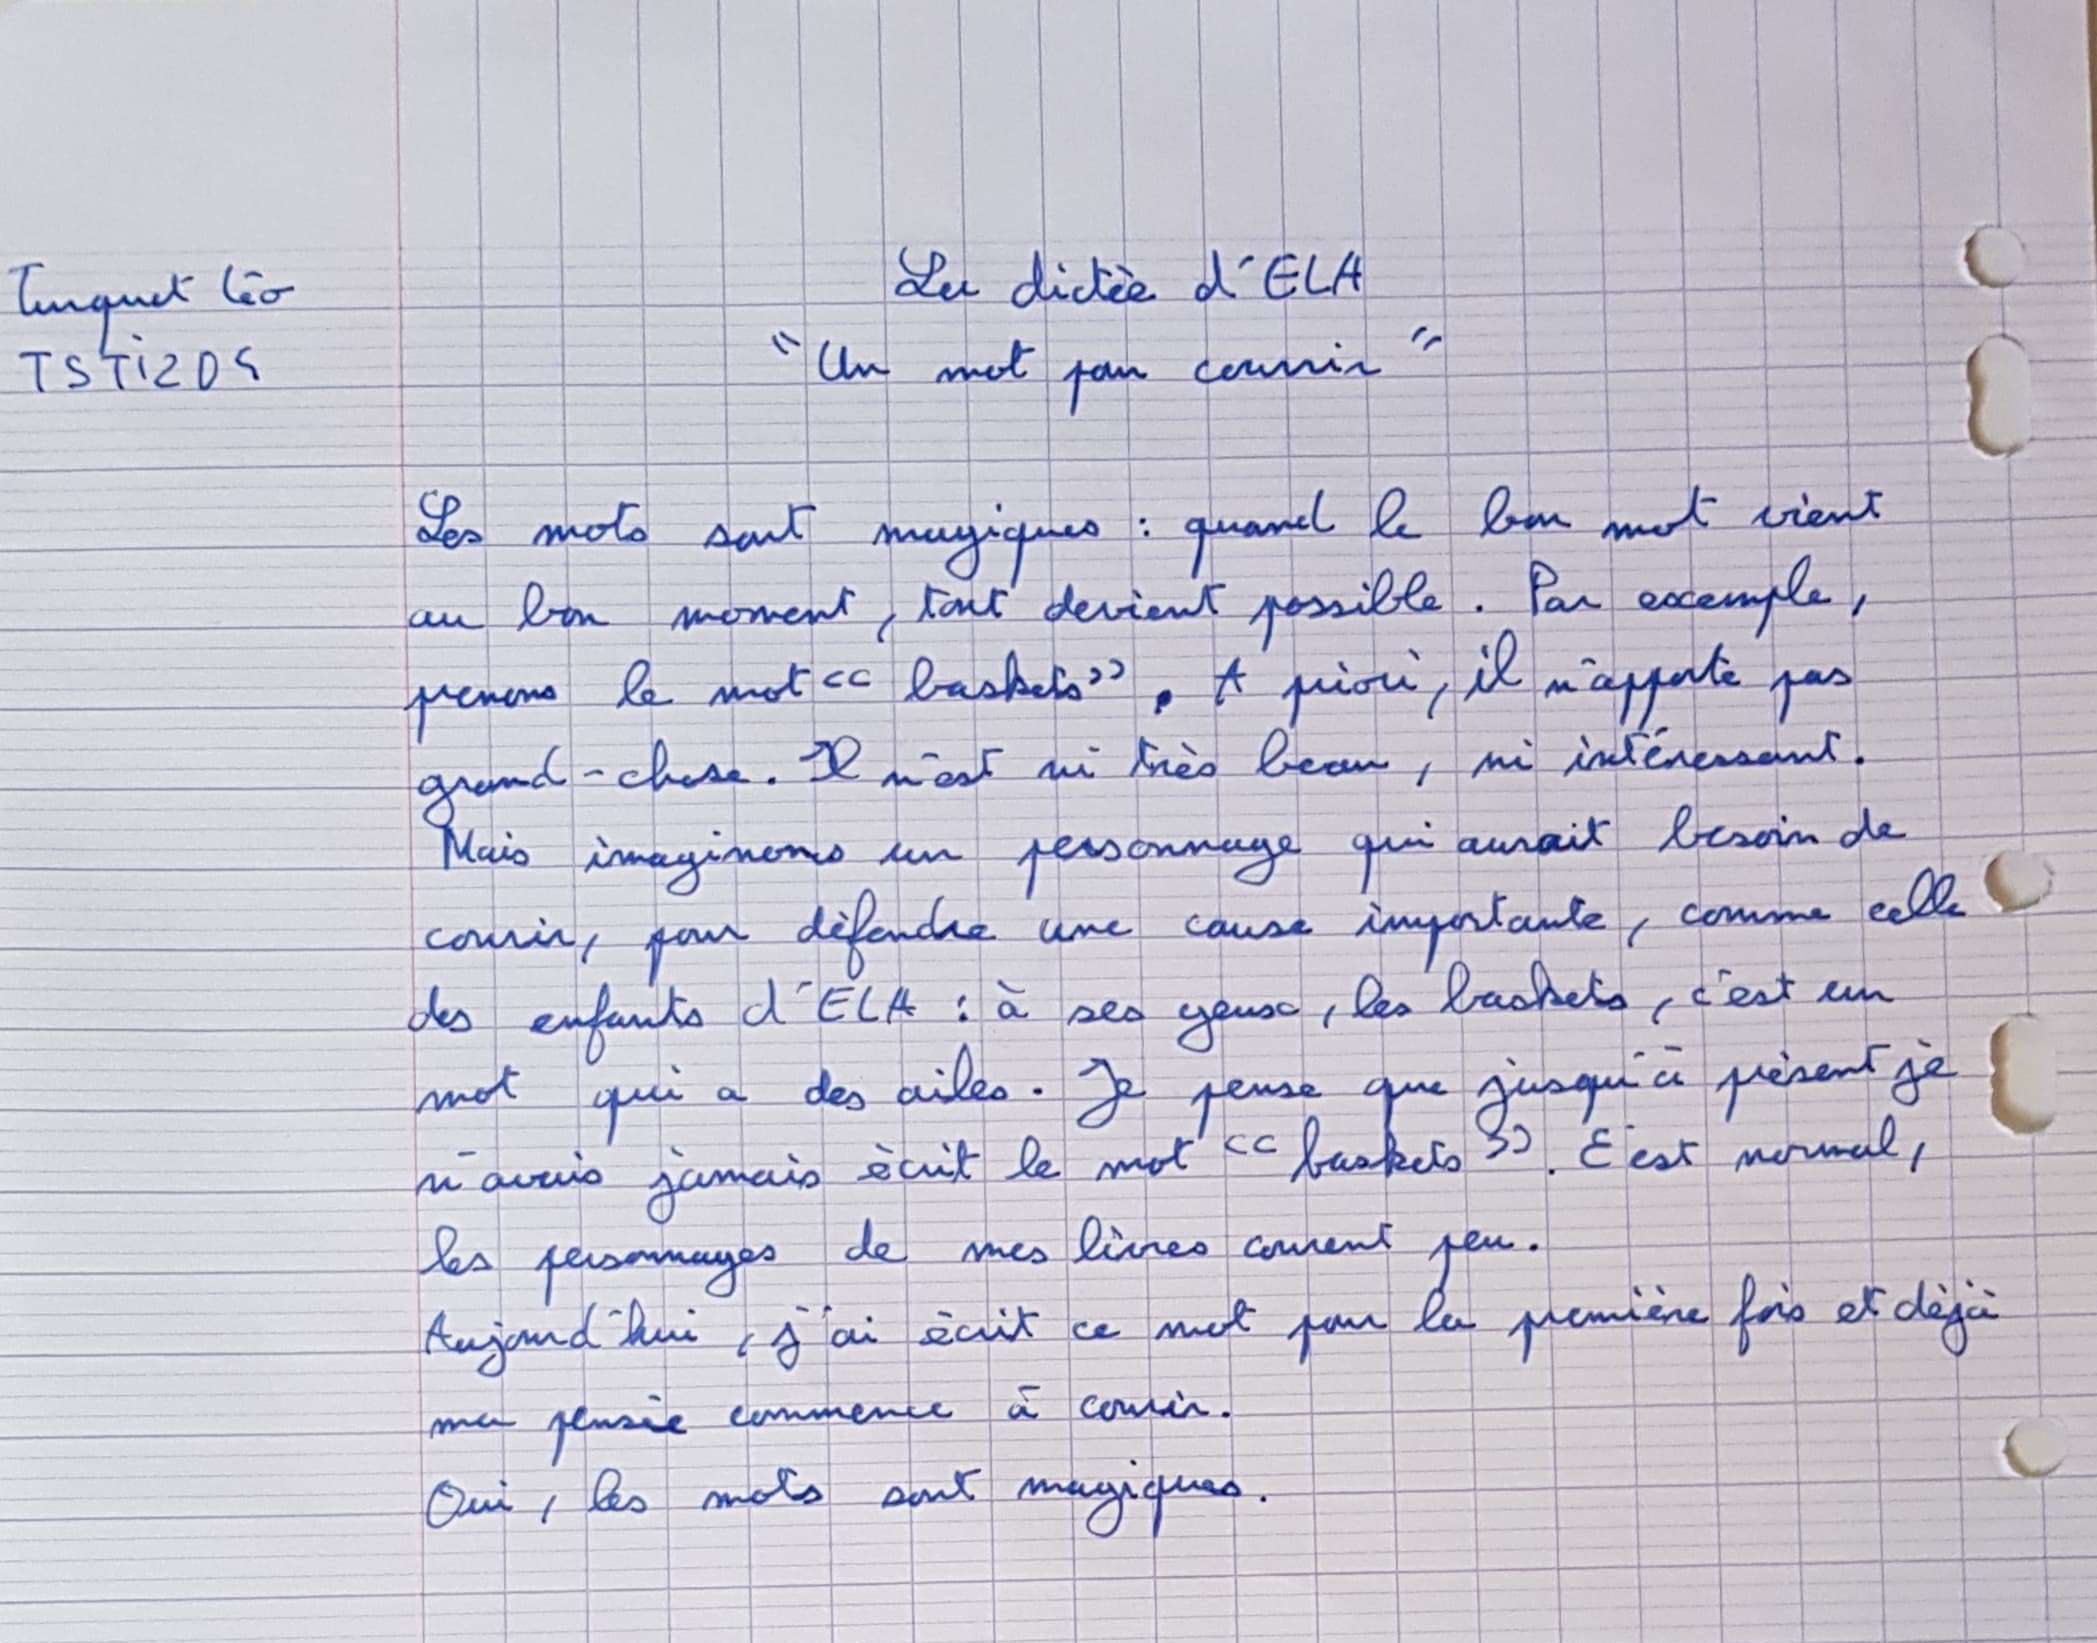 Turquet Léo
La dictée d'ELA
TSTi2D4
"Un mot pour courir"
Les mots sont magiques : quand le bon mot vient
au bon moment, tout devient possible. Par exemple,
prenons le mot << baskets >>. A priori, il n'apporte pas
grand-chose. Il n'est ni très beau, ni intéressant.
Mais imaginons un personnage qui aurait besoin de
courir, pour défendre une cause importante, comme celle
des enfants d'ELA : à ses yeux, les baskets, c'est un
mot qui a des ailes. Je pense que jusqu'à présent je
n'avais jamais écrit le mot << baskets >>. C'est normal,
les personnages de mes livres courent peu.
Aujourd'hui, j'ai écrit ce mot pour la première fois et déjà
ma pensée commence à courir.
Oui, les mots sont magiques.